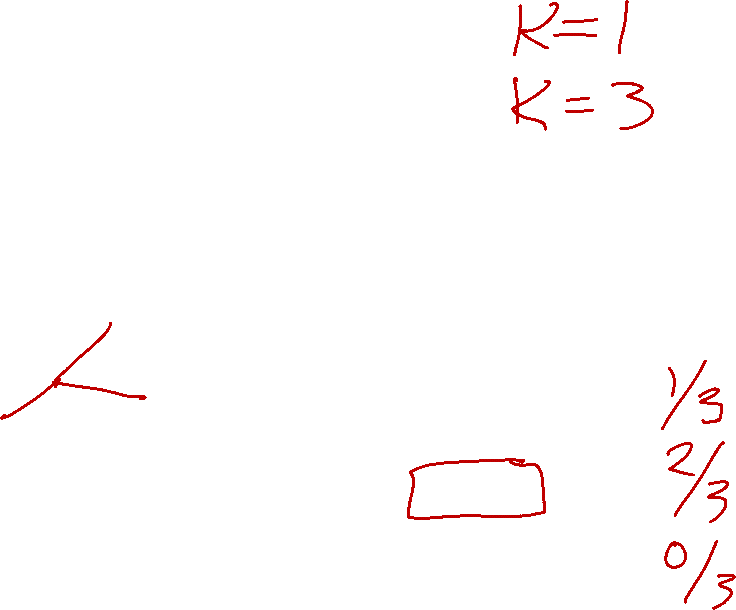 K=1
K=3
1/3
2/3
0/3